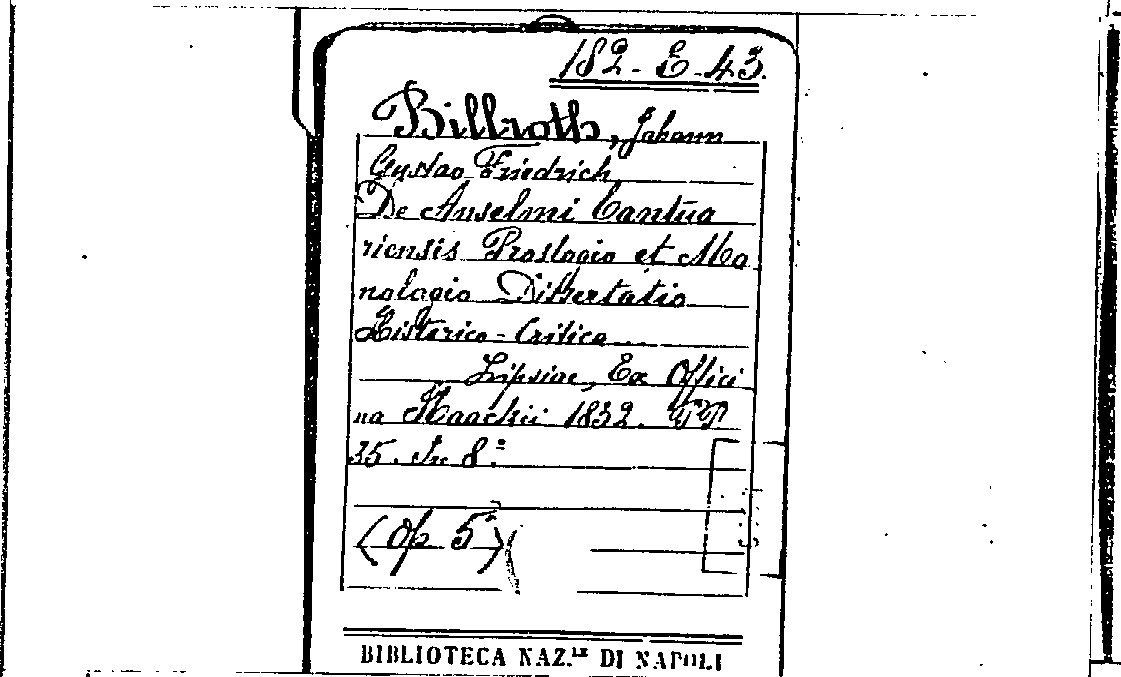 182-E-43.
Billroth, Johann
Gustav Friedrich,
De Anselmi Cantua
riensis Proslogio et Mo
nologio Dissertatio
Historico-Critica...
Lipsiae, Ex Offici
na Haackii 1832. PP
35. In 8.º
(Op 5º)
BIBLIOTECA NAZ.LE DI NAPOLI